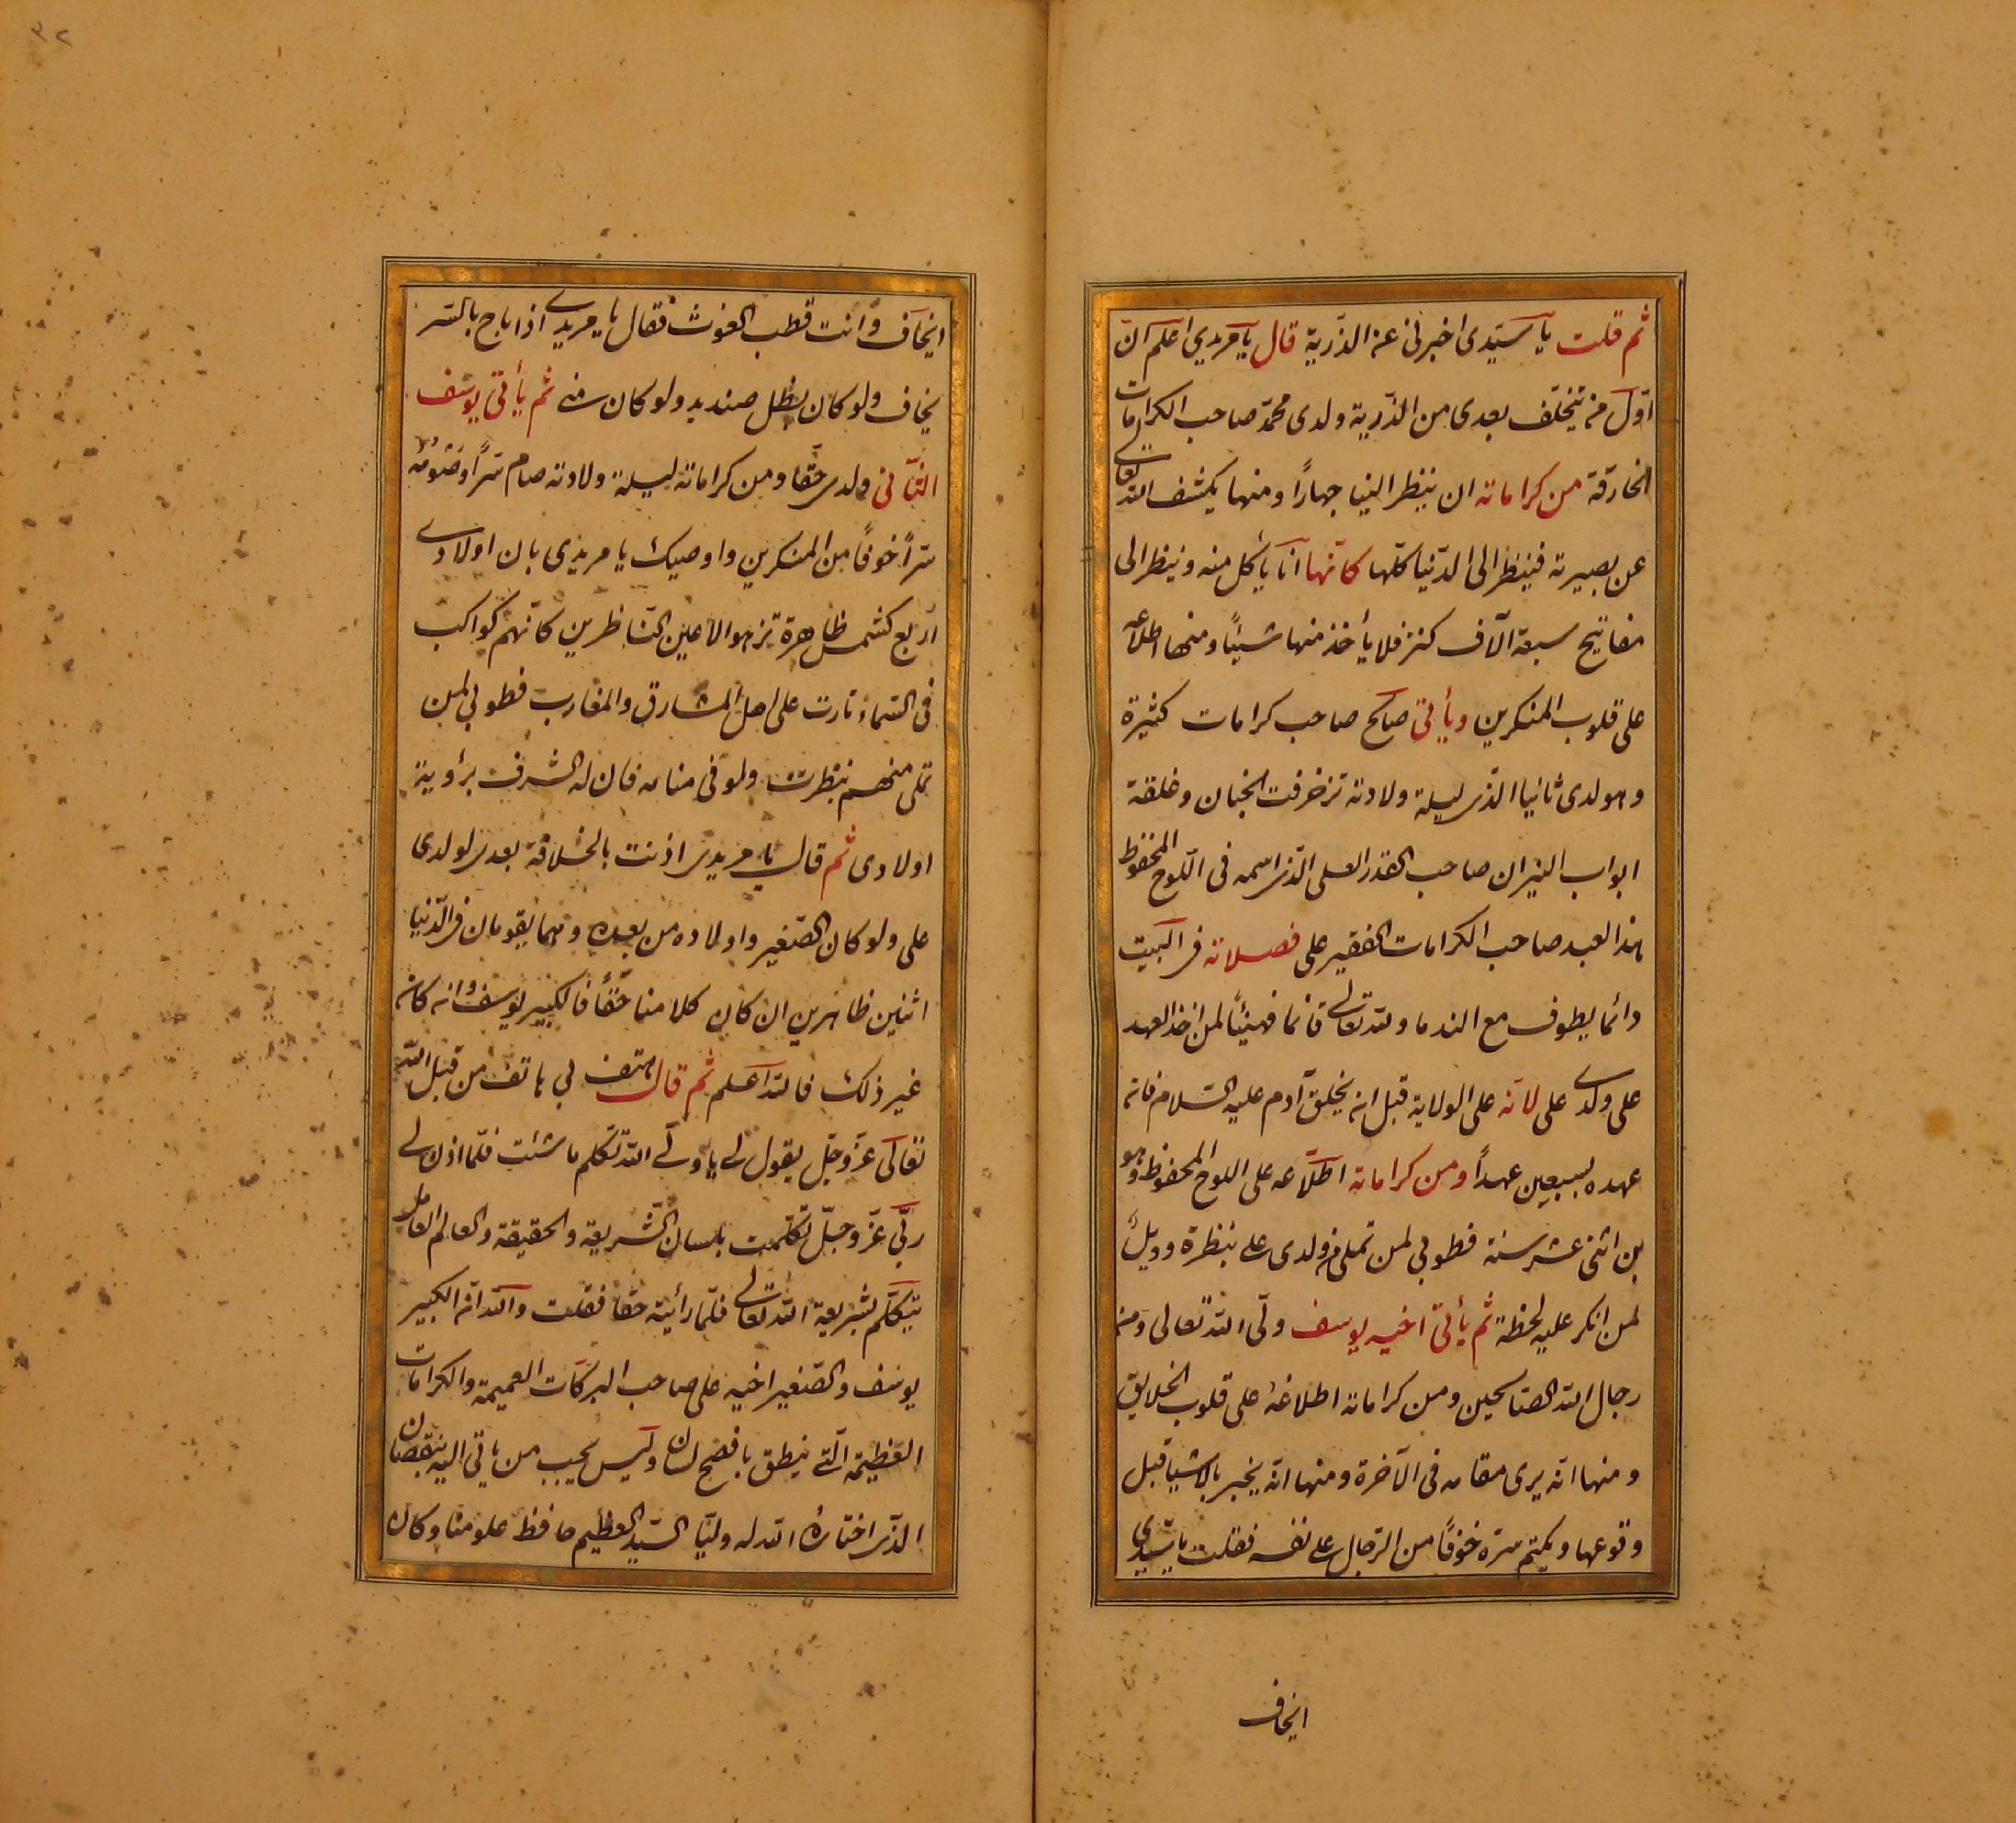 ثم قلت يا سيّدى اخبرنى عن الذرية قال يا مريدي اعلم انّ
اوّل من يتخلّف بعدى من الذّرية ولدى محمد صاحب الكرامات
الخارقة من كراماته ان ينظر النيا جهاراً ومنها يكشف الله تعالى
عن بصيرته فينظر الى الدّنيا كلّها كانّها انا يأكل منه وينظر الى
مفاتيح سبعة آلاف كنز فلا يأخذ منها شيئاً ومنها اطلاعه
على قلوب المنكرين ويأتى صالح صاحب كرامات كثيرة
وهو لدى ثانيا الذى ليلة ولادته تزخرفت الجنان وغلقة
ابواب النيران صاحب القدر العلى الذى اسمه فى اللّوح المحفوظ
هذا العبد صاحب الكرامات الفقير على فصلاته فى البيت
دائما يطوف مع الندما ولله تعالى قائما فهنيئاً لمن اخذ العهد
على ولدى على لانّه على الولاية قبل ان يخلق آدم عليه السّلام فانه
عهده بسبعين عهداً ومن كراماته اطلّاعه على اللوح المحفوظ وهو
بن اثنى عشر سنة فطوبى لمن تملى من ولدى على بنظرة وويلٌ
لمن انكر عليه لحظة ثم يأتى اخيه يوسف ولّى الله تعالى ومن
رجال الله الصّالحين ومن كراماته اطلاعهُ على قلوب الخلايق
ومنها انّه يرى مقامه فى الآخرة ومنها انّه يخبر بالاشيا قبل
وقوعها ويكتم سرّه خوفاً من الرّجال على نفسه فقلت يا سيّدى
ايخاف
٣٢
ايخاف وانت قطب الغوث فقال يا مريدى اذا باح بالسّر
يخاف ولو كان بطل صنديد ولو كان منى ثم يأتى يوسف
الثّانى ولدى حقّا ومن كراماته ليلة ولادته صام سرّاً وصومه
سرّاً خوفاً من المنكرين واوصيك يا مريدى بان اولادى
اربع كشمس ظاهرة تزهو الاعين النّاظرين كانّهم كواكب
فى السّماء نارت على اهل المشارق والمغارب فطوبى لمن
تملى منهم بنظرت ولو فى منامه فان له الشرف برؤية
اولادى ثم قال يا مريدى اذنت بالخلافة بعدى لولدى
على ولو كان الصّغير واولاده من بعده وهما يقومان فى الدّنيا
اثنين ظاهرين ان كان كلامنا حقّاً فالكبير يوسف وان كان
غير ذلك فالله اعلم ثم قال هتف بى هاتف من قبل الله
تعالى عزّ وجلّ يقول لى يا ولّى الله تكلم ما شئت فلمّا اذن لى
ربّى عزّ وجلّ تكلّمت بلسان الشّريعة والحقيقة والعالم العامل
يتكلّم بشريعة الله تعالى فلمّا رأيته حقّا فقلت والله انّه الكبير
يوسف والصّغير اخيه على صاحب البركات العميمة والكرامات
العظيمة الّتى ينطق بافصح لسان وليس يحيب من ياتى اليه بنقصان
الذى اختارهُ الله له وليّا السّيد العظيم حافظ علومنا وكان